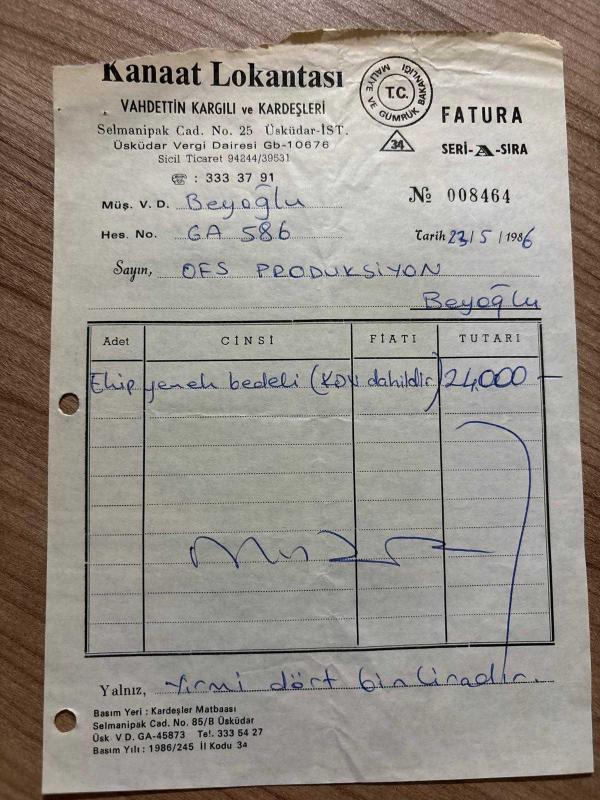 Kanaat Lokantası
VAHDETTİN KARGILI ve KARDEŞLERİ
Selmanipak Cad. No. 25 Üsküdar-İST.
Üsküdar Vergi Dairesi Gb-10676
Sicil Ticaret 94244/39531
☎ : 333 37 91
T.C.
MALİYE VE GÜMRÜK BAKANLIĞI
34
FATURA
SERİ-A-SIRA
№ 008464
Müş. V. D. Beyoğlu
Hes. No. GA 586
Tarih 23/5/1986
Sayın, OFS PRODUKSİYON
Beyoğlu
Adet CİNSİ FİATI TUTARI
Ekip yemek bedeli (KDV dahildir) 24,000 —
Yalnız, Yirmi dört bin liradır.
Basım Yeri : Kardeşler Matbaası
Selmanipak Cad. No. 85/B Üsküdar
Üsk V D. GA-45873 Tel. 333 54 27
Basım Yılı : 1986/245 İl Kodu 34